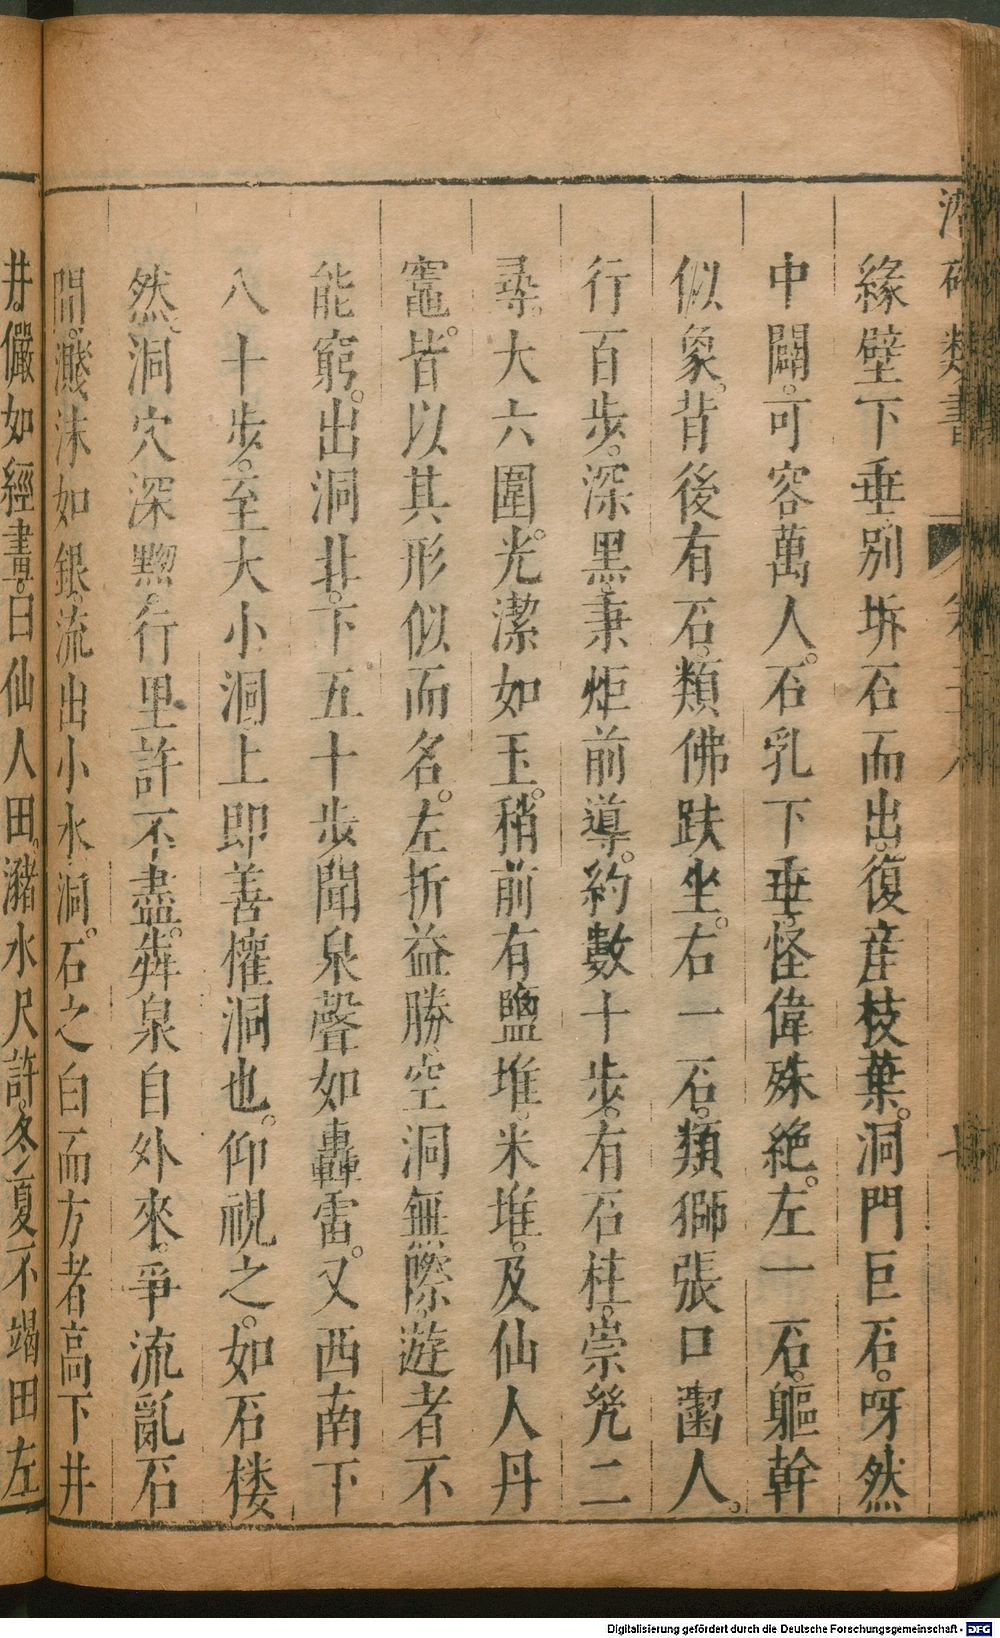 類書
緣壁下垂別坼石而出。復産枝葉。洞門巨石。呀然
中闢。可容萬人。石乳下垂。怪偉殊絶。左一石。軀幹
似象。背後有石。類佛趺坐。右一石。類獅張口齧人。
行百步。深黑。秉炬前導。約數十步。有石柱。崇凳二
尋。大六圍。光潔如玉。稍前有鹽堆。米堆。及仙人丹
竈。皆以其形似而名。左折益勝。空洞無際。遊者不
能窮。出洞北。下五十步。聞泉聲如轟雷。又西南下
八十步。至大小洞上。即善懽洞也。仰視之。如石楼
然。洞穴深黝。行里許不盡。犇泉自外來。爭流亂石
間。濺沫如銀。流出小水洞。石之白而方者高下井
井。儼如經畫。曰仙人田。瀦水尺許。冬夏不竭田左
Digitalisierung gefördert durch die Deutsche Forschungsgemeinschaft - DFG